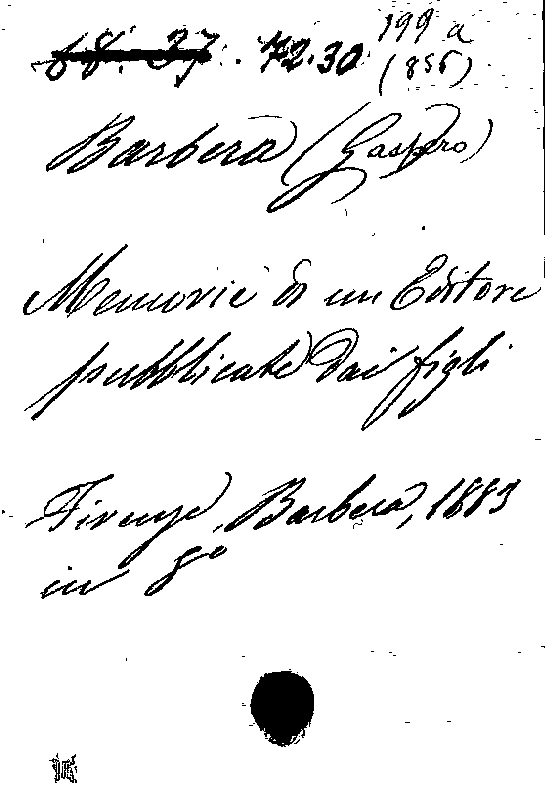 68. 37. 72.30 199 a
(856)
Barbera (Gaspero)
Memorie di un Editore
pubblicate dai figli
Firenze, Barbera, 1883
in 8º